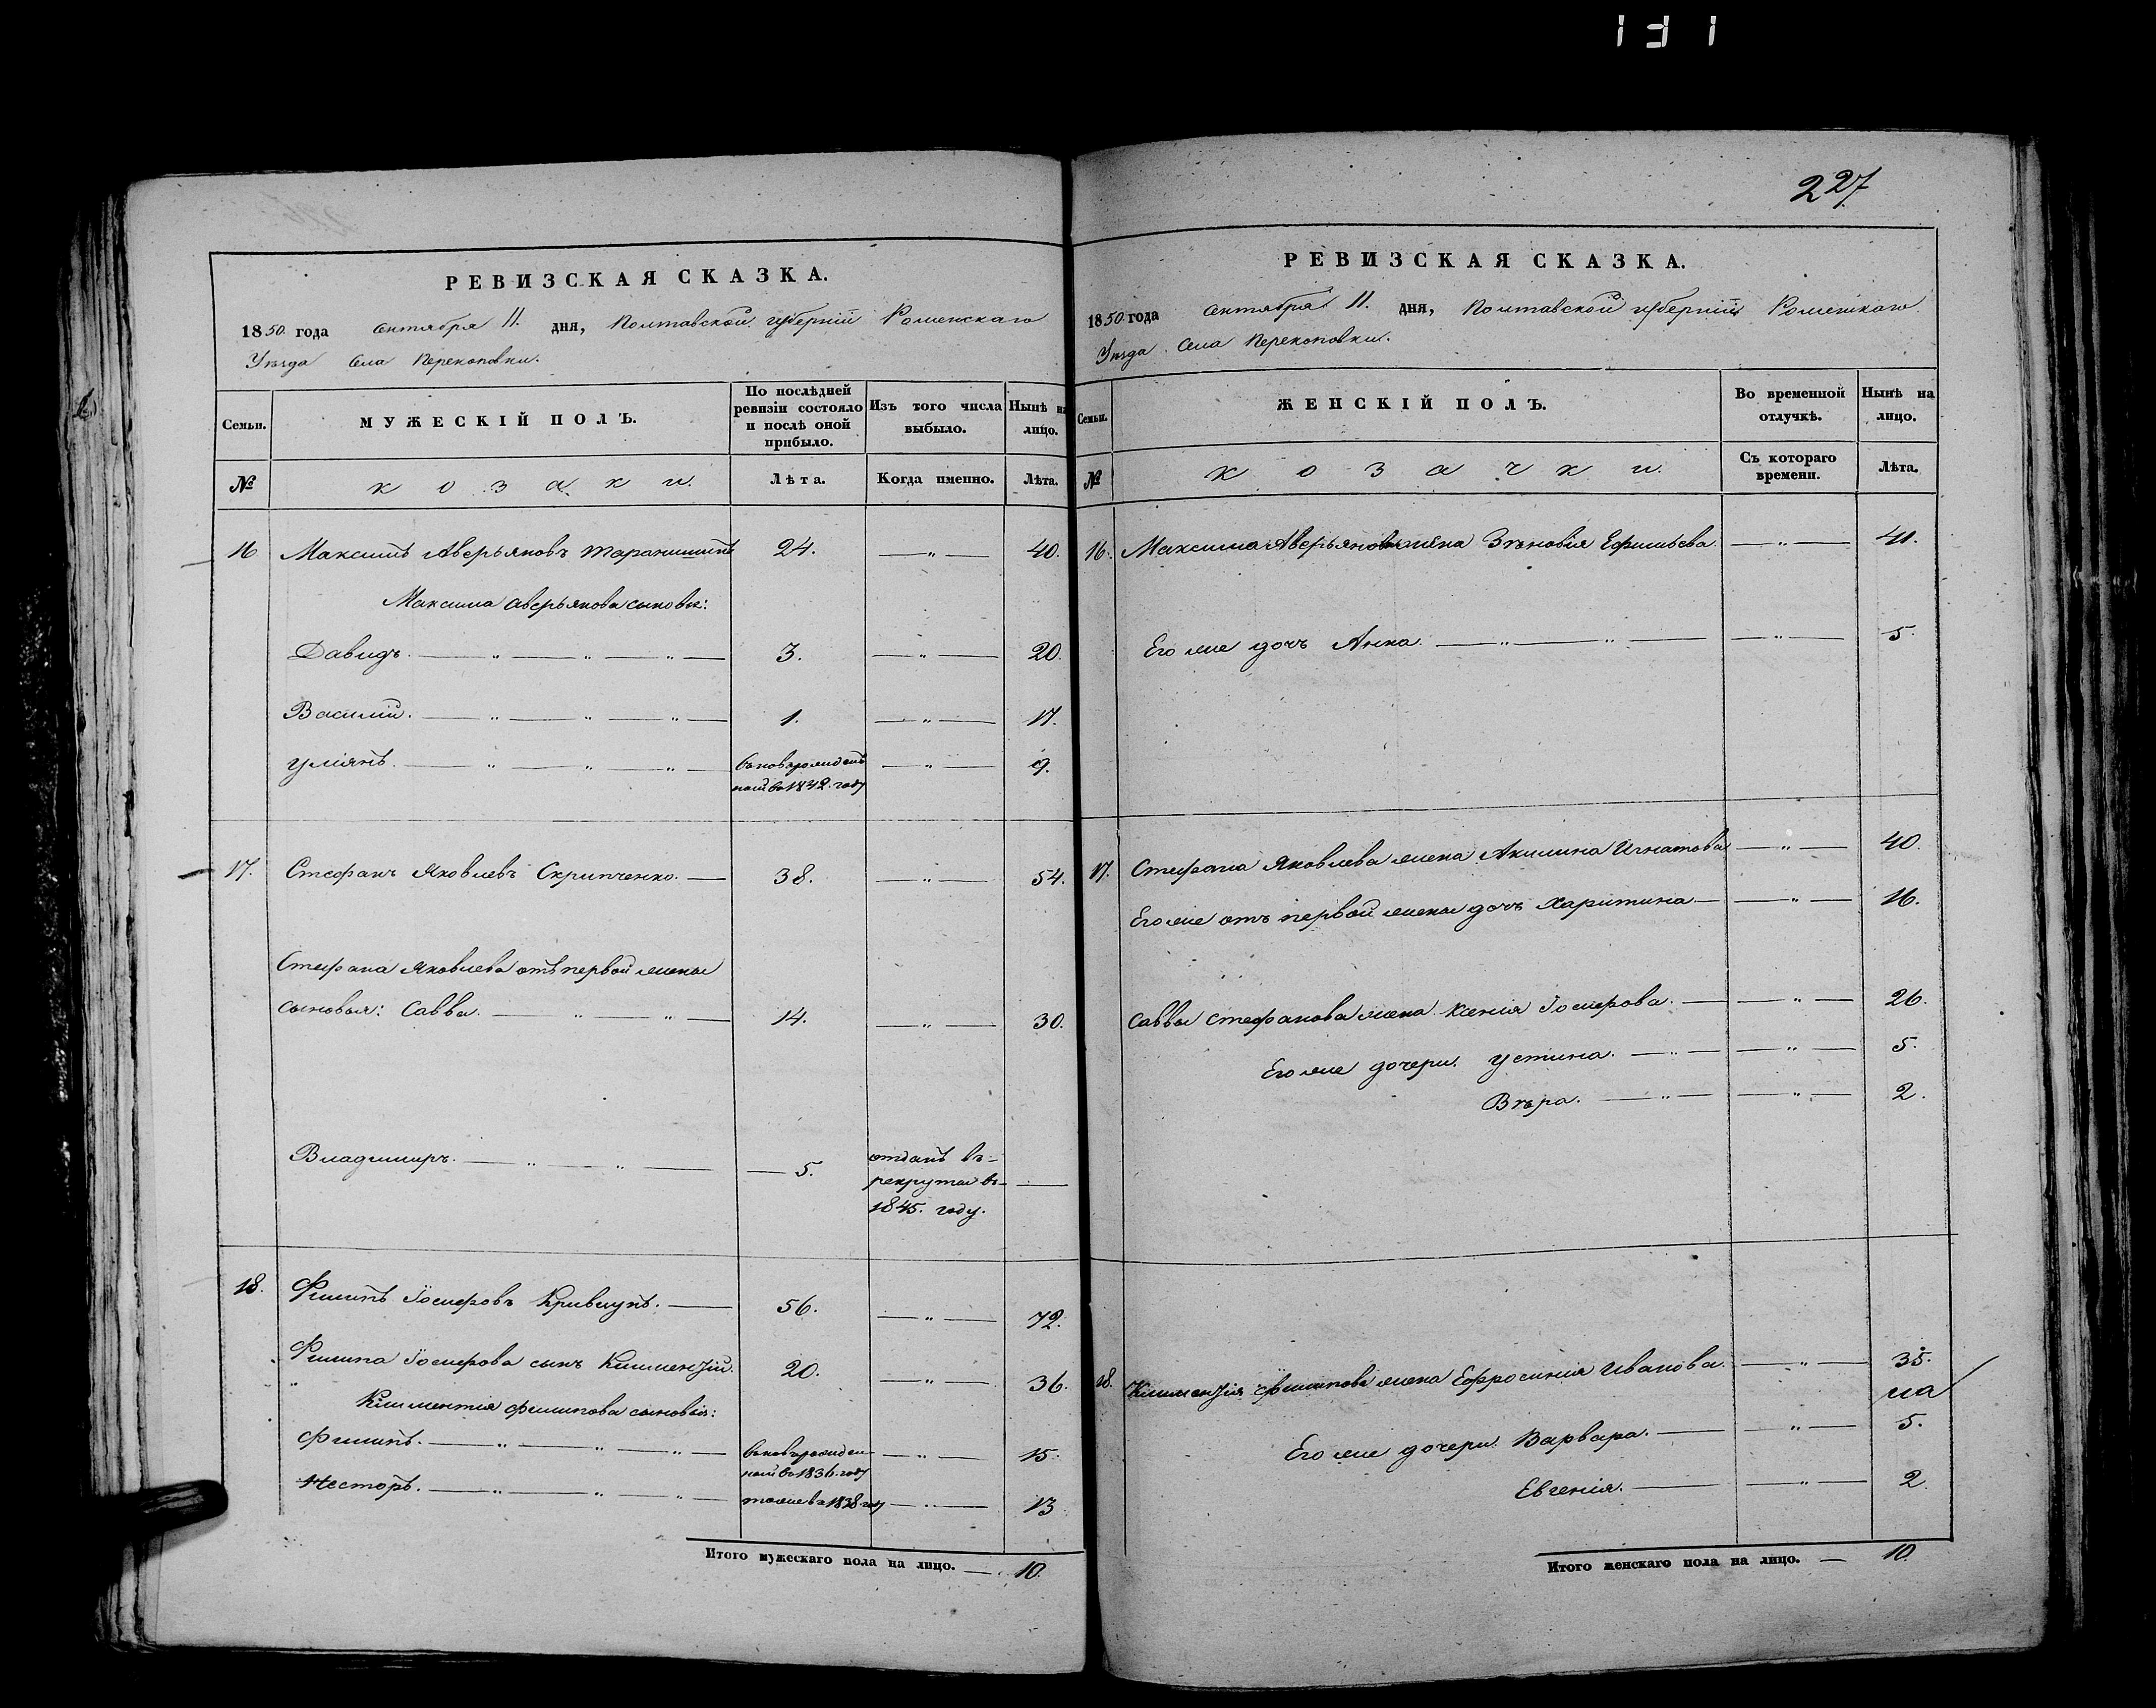 131
227
РЕВИЗСКАЯ СКАЗКА.
1850 года Октября 11. дня, Полтавской губерніи Роменскаго
Уѣзда Села Перекоповки.
Семьи.
МУЖЕСКІЙ ПОЛЪ.
По послѣдней ревизіи состояло и послѣ оной прибыло.
Изъ того числа выбыло.
Нынѣ на лицо.
№
козаки.
Лѣта.
Когда именно.
Лѣта.
16 Максимъ Аверьяновъ 24. — „ — 40.
Максима Аверьянова сыновья:
Давидъ. — „ — „ — „ — 3. — „ — 20.
Василій. — „ — „ — „ — 1. — „ — 17.
— „ — „ — „ — — „ — 9.
году
17. Стефанъ Яковлевъ Скрипченко. — 38. — „ — 54.
Стефана Яковлева отъ первой жены
сыновья: Савва. — „ — „ — 14. — „ — 30.
Владимиръ. — „ — „ — — 5. отданъ въ —
рекруты въ
1845. году.
18. Филипъ Іосифовъ Кривцунъ. — 56. — „ — 72.
Филипа Іосифова сынъ Климентій. 20. — „ — 36.
Климентія Филипова сыновья:
Филипъ. — „ — „ — „ — вновь рожден — „ — 15.
ный въ 1836. году
Несторъ. — „ — „ — „ — тоже въ 1838 году — „ — 13
Итого мужескаго пола на лицо. — 10.
РЕВИЗСКАЯ СКАЗКА.
1850 года Октября 11. дня, Полтавской губерніи Роменскаго
Уѣзда Села Перекоповки.
Семьи.
ЖЕНСКІЙ ПОЛЪ.
Во временной отлучкѣ.
Нынѣ на лицо.
№
козачки.
Съ котораго времени.
Лѣта.
16. Максима Аверьянова жена Зѣновія Ефимьева. — „ — 41.
Его же дочь Анна. — „ — „ — — „ — 5.
17. Стефана Яковлева жена Акилина Игнатова — „ — 40.
Его же отъ первой жены дочь Харитина — — „ — 16.
Саввы Стефанова жена Ксенія Іосифова. — — „ — 26.
Его же дочери. Устина. — „ — — „ — 5.
Вѣра. — „ — — „ — 2.
18. Климентія Филипова жена Ефросинія Иванова. — „ — 35.
Его же дочери. Варвара. — — „ — 5.
Евгенія. — — „ — 2.
Итого женскаго пола на лицо. — 10.